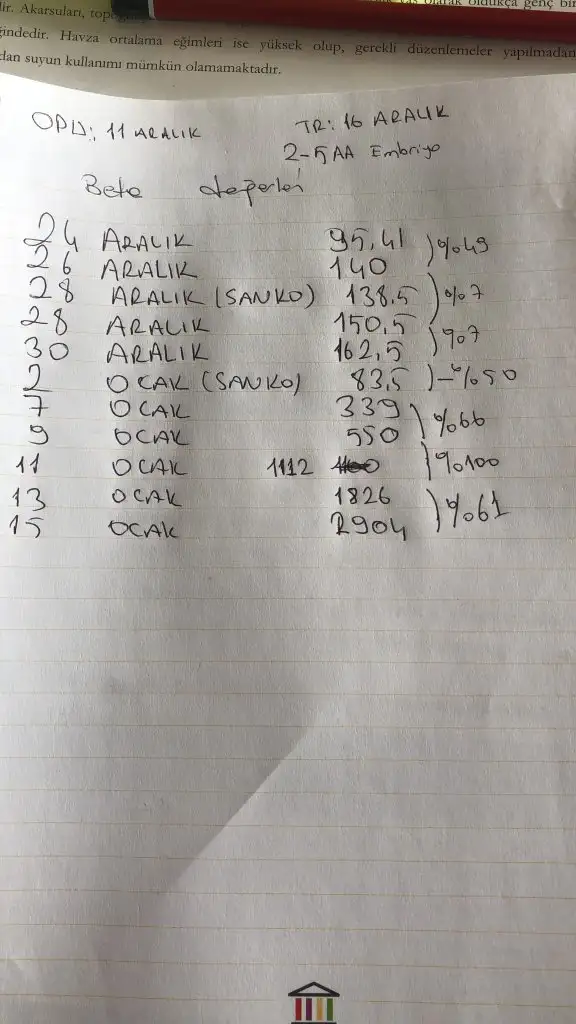 dir. Akarsuları,
olarak oldukça genç bir
ğindedir. Havza ortalama eğimleri ise yüksek olup, gerekli düzenlemeler yapılmadan
dan suyun kullanımı mümkün olamamaktadır.
OPU: 11 ARALIK TR: 16 ARALIK
2-5AA Embriyo
Beta değerleri
24 ARALIK 95,41 )%49
26 ARALIK 140
28 ARALIK (SANKO) 138,5 )%7
28 ARALIK 150,5
30 ARALIK 162,5 )%7
2 OCAK (SANKO) 83,5 )-%50
7 OCAK 339
9 OCAK 550 )%66
11 OCAK 1112 )%100
13 OCAK 1826
15 OCAK 2904 )%61